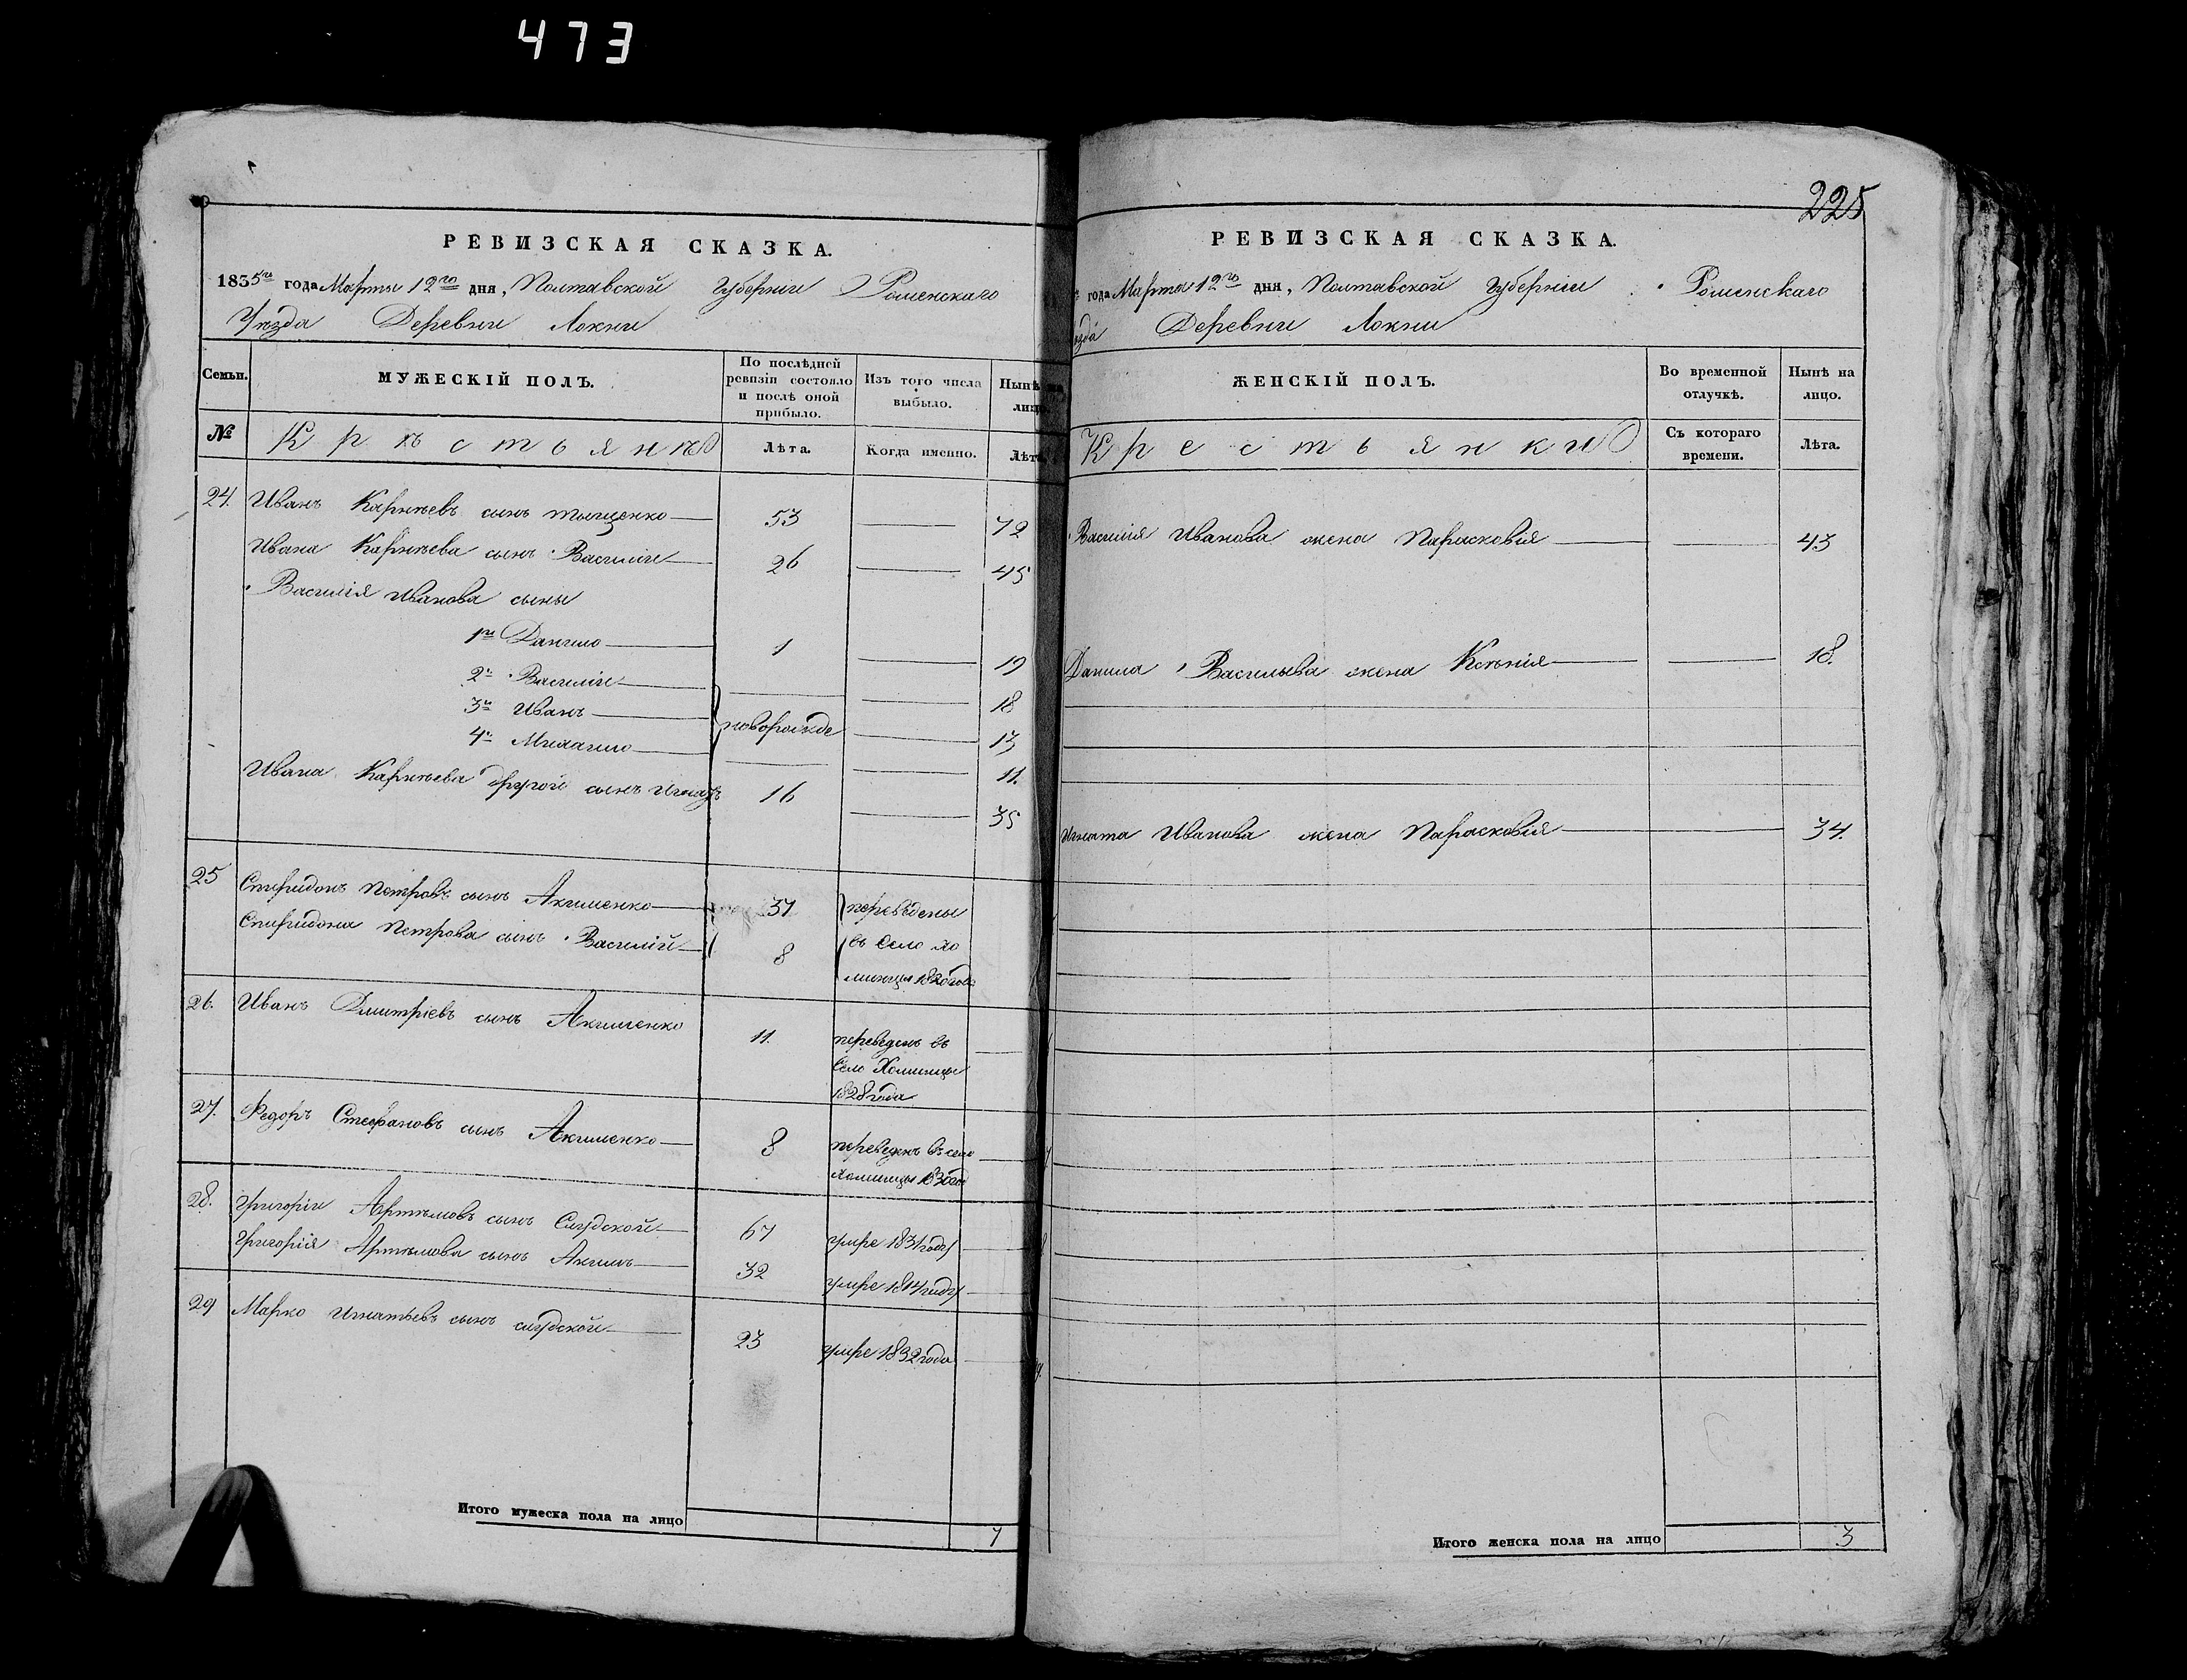 473
РЕВИЗСКАЯ СКАЗКА.
1835го года Марта 12го дня, Полтавской Губернии Роменскаго
Уезда Деревни Локни
Семьи.
МУЖЕСКІЙ ПОЛЪ.
По послѣдней ревизіи состояло и послѣ оной прибыло.
Изъ того числа выбыло.
Нынѣ на лицо
№
Крѣстьянѣ
Лѣта.
Когда именно.
Лѣта
24. Иванъ Карнѣевъ сынъ Тыщенко 53 72
Ивана Карнѣева сынъ Василій 26 45
Василія Иванова сыны
1й Данило 1 19
2й Василій 18
3й Иванъ новорожде 13
4й Михаило 11.
Ивана Карнѣева другой сынъ Игнатъ 16 35
25 Спиридонъ Петровъ сынъ Акименко 37 переведены
Спиридона Петрова сынъ Василій 8 въ Село Хо
минцы 1820 года
26. Иванъ Дмитріевъ сынъ Акименко 11. переведенъ въ
Село Хоминцы
1828 года
27. Федоръ Стефановъ сынъ Акименко 8 переведенъ въ село
Хоминцы
28. Григорій Артемовъ сынъ Слудской 67 умре 1831 году
Григорія Артемова сынъ Акимъ 32 умре 1814 году
29 Марко Игнатьевъ сынъ слудской 23 умре 1832 года
Итого мужеска пола на лицо 7
225
РЕВИЗСКАЯ СКАЗКА.
года Марта 12го дня, Полтавской Губерніи Роменскаго
езда Деревни Локни
ЖЕНСКІЙ ПОЛЪ.
Во временной отлучкѣ.
Нынѣ на лицо.
Крестьянки
Съ котораго времени.
Лѣта.
Василія Иванова жена Парасковія 43
Данила Васильева жена Ксенія 18.
Игната Иванова жена Парасковія 34.
Итого женска пола на лицо 3